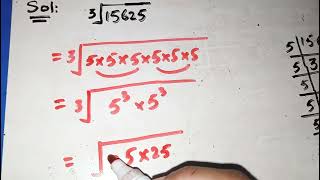 Sol: ∛15625
= ∛5×5×5×5×5×5
= ∛5³×5³
= √5×25
5 | 15
5 | 3
5
5
5